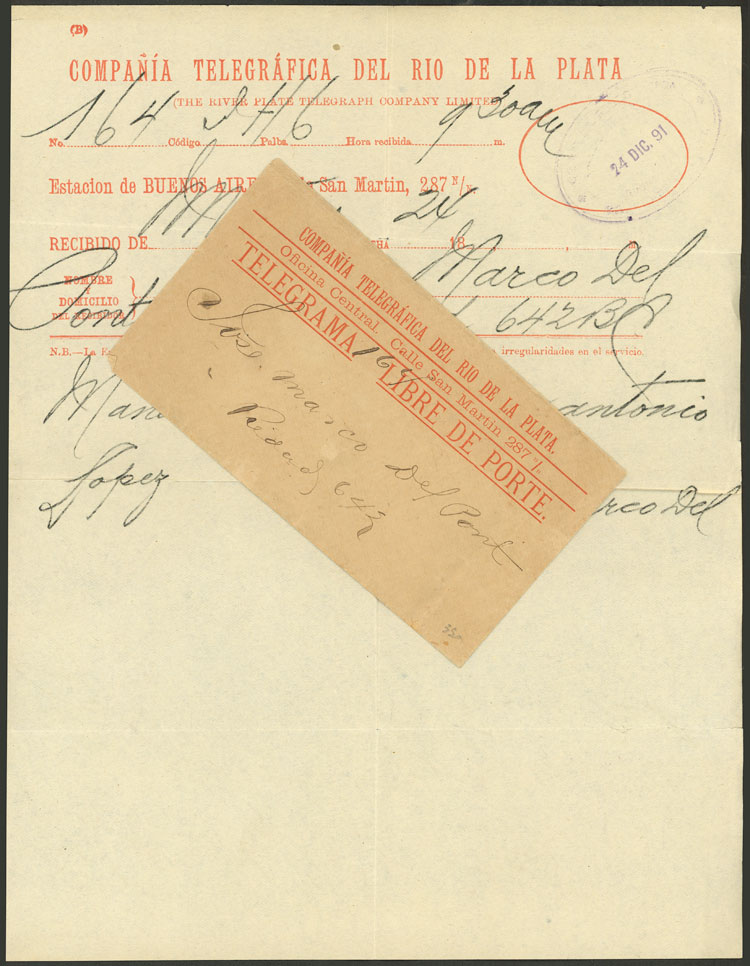 (B)
COMPAÑÍA TELEGRÁFICA DEL RIO DE LA PLATA
(THE RIVER PLATE TELEGRAPH COMPANY LIMITED
164 7/6 9 30am
No. Código. Palbs. Hora recibida m.
24 DIC. 91
Estacion de BUENOS AIRE San Martin, 287 N/
24
RECIBIDO DE 18
Marco Del
NOMBRE
Pont 642
DOMICILIO
DEL RECIBIDOR
N.B.—La E irregularidades en el servicio.
antonio
Lopez
rco Del
COMPAÑÍA TELEGRÁFICA DEL RIO DE LA PLATA.
Oficina Central, Calle San Martin 287
TELEGRAMA LIBRE DE PORTE.
164
José Marco Del Pont
Piedad 642